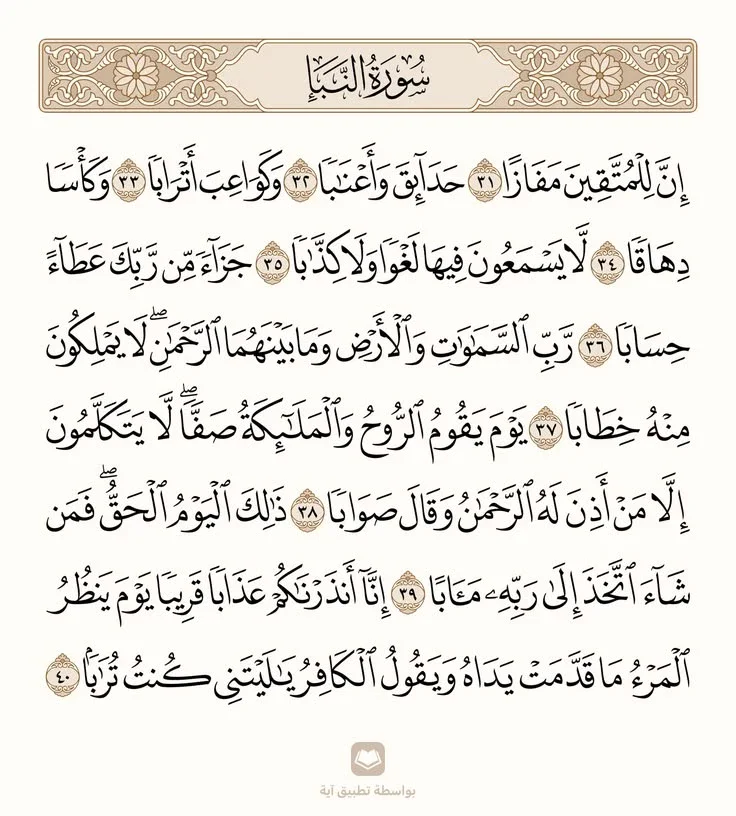 سُورَةُ النَّبَإِ
إِنَّ لِلْمُتَّقِينَ مَفَازًا ٣١ حَدَآئِقَ وَأَعْنَٰبًا ٣٢ وَكَوَاعِبَ أَتْرَابًا ٣٣ وَكَأْسًا
دِهَاقًا ٣٤ لَّا يَسْمَعُونَ فِيهَا لَغْوًا وَلَا كِذَّٰبًا ٣٥ جَزَآءً مِّن رَّبِّكَ عَطَآءً
حِسَابًا ٣٦ رَّبِّ ٱلسَّمَٰوَٰتِ وَٱلْأَرْضِ وَمَا بَيْنَهُمَا ٱلرَّحْمَٰنِ ۖ لَا يَمْلِكُونَ
مِنْهُ خِطَابًا ٣٧ يَوْمَ يَقُومُ ٱلرُّوحُ وَٱلْمَلَٰٓئِكَةُ صَفًّا ۖ لَّا يَتَكَلَّمُونَ
إِلَّا مَنْ أَذِنَ لَهُ ٱلرَّحْمَٰنُ وَقَالَ صَوَابًا ٣٨ ذَٰلِكَ ٱلْيَوْمُ ٱلْحَقُّ ۖ فَمَن
شَآءَ ٱتَّخَذَ إِلَىٰ رَبِّهِۦ مَـَٔابًا ٣٩ إِنَّآ أَنذَرْنَٰكُمْ عَذَابًا قَرِيبًا يَوْمَ يَنظُرُ
ٱلْمَرْءُ مَا قَدَّمَتْ يَدَاهُ وَيَقُولُ ٱلْكَافِرُ يَٰلَيْتَنِى كُنتُ تُرَٰبًۢا ٤٠
بواسطة تطبيق آية